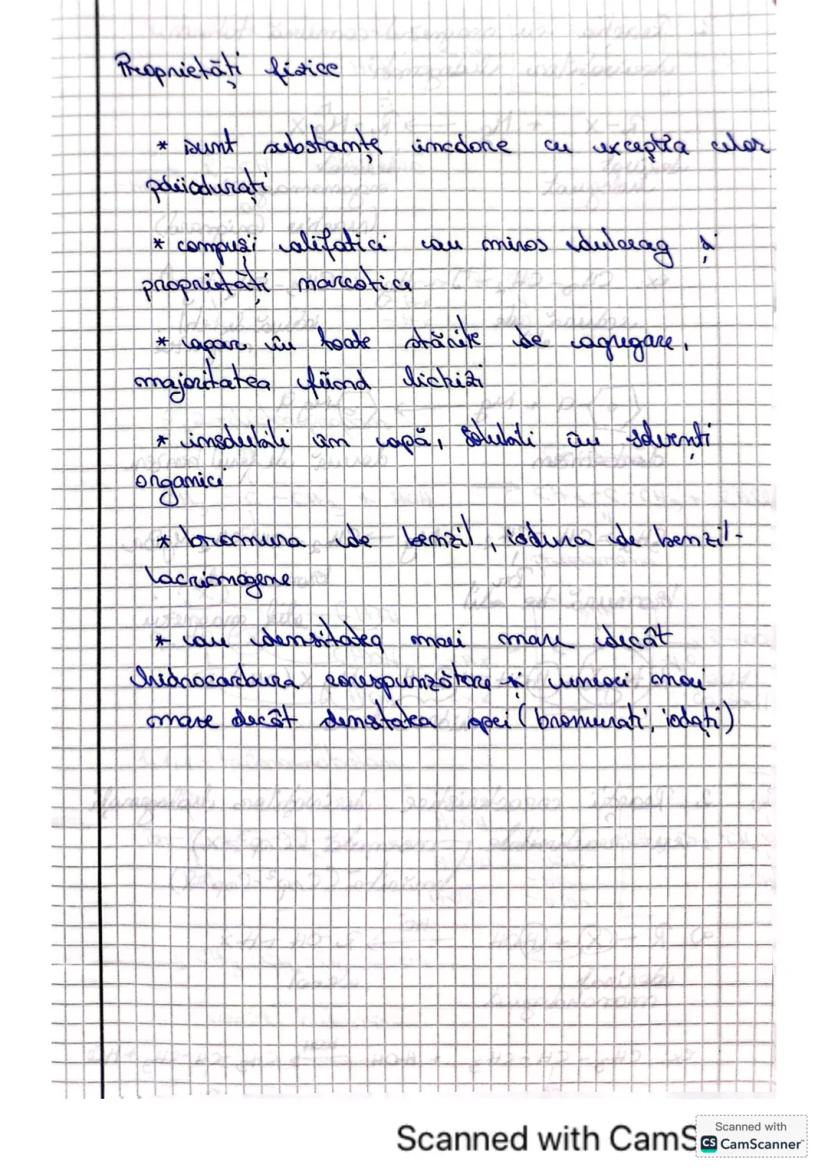 Proprietăți fizice
* sunt substanțe incolore cu excepția celor
poliiodurați
* compuși alifatici au miros dulceag și
proprietăți narcotice
* apar în toate stările de agregare,
majoritatea fiind lichizi
* insolubili în apă, solubili în solvenți
organici
* bromura de benzil, iodura de benzil-
lacrimogene
* au densitatea mai mare decât
hidrocarbura corespunzătoare și uneori mai
mare decât densitatea apei (bromurați, iodați)
Scanned with CamS
Scanned with
CS CamScanner